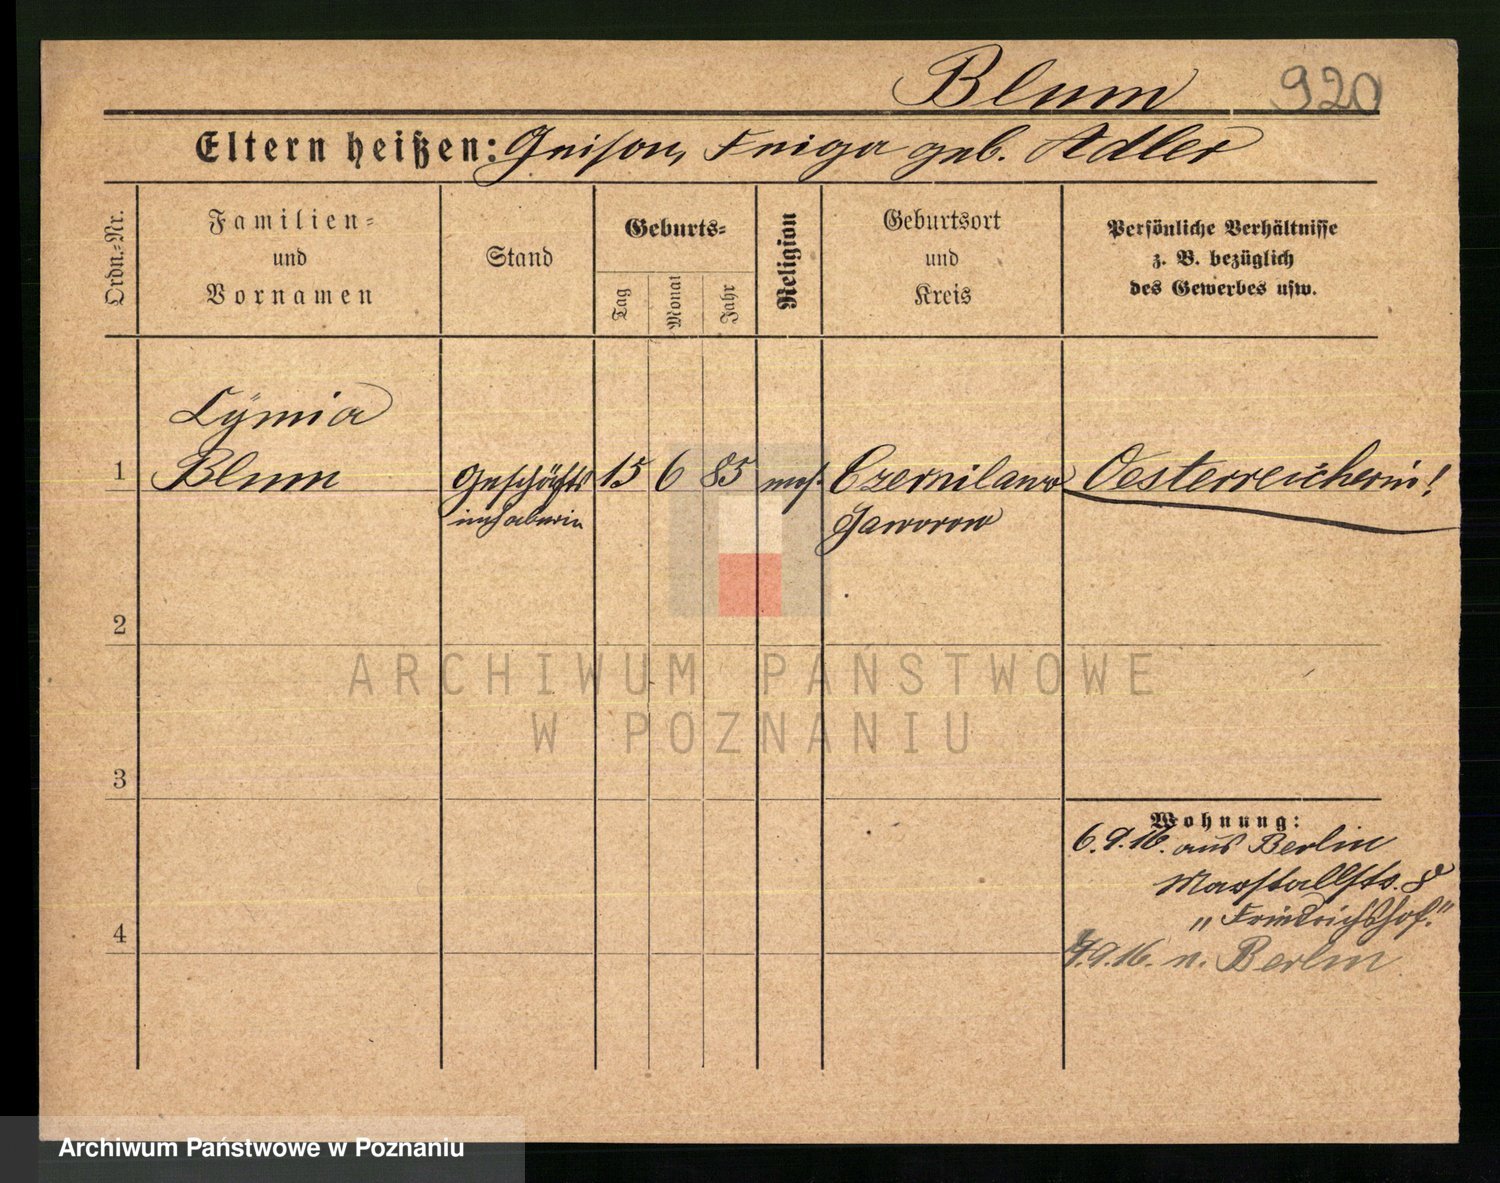 Blum 920
Eltern heißen: Gerson, Feiga geb. Adler
Ordn.-Nr.
Familien-
und
Vornamen
Stand
Geburts-
Tag
Monat
Jahr
Religion
Geburtsort
und
Kreis
Persönliche Verhältnisse
z. B. bezüglich
des Gewerbes usw.
Blum
1
Geschäfts
inhaberin
15 6 85 mos.
Jaworow
Oesterreicherin!
2
ARCHIWUM PAŃSTWOWE
W POZNANIU
3
Wohnung:
6.9.16. aus Berlin
Marstallstr. 8
"Friedrichshof."
4
9.16. n. Berlin
Archiwum Państwowe w Poznaniu